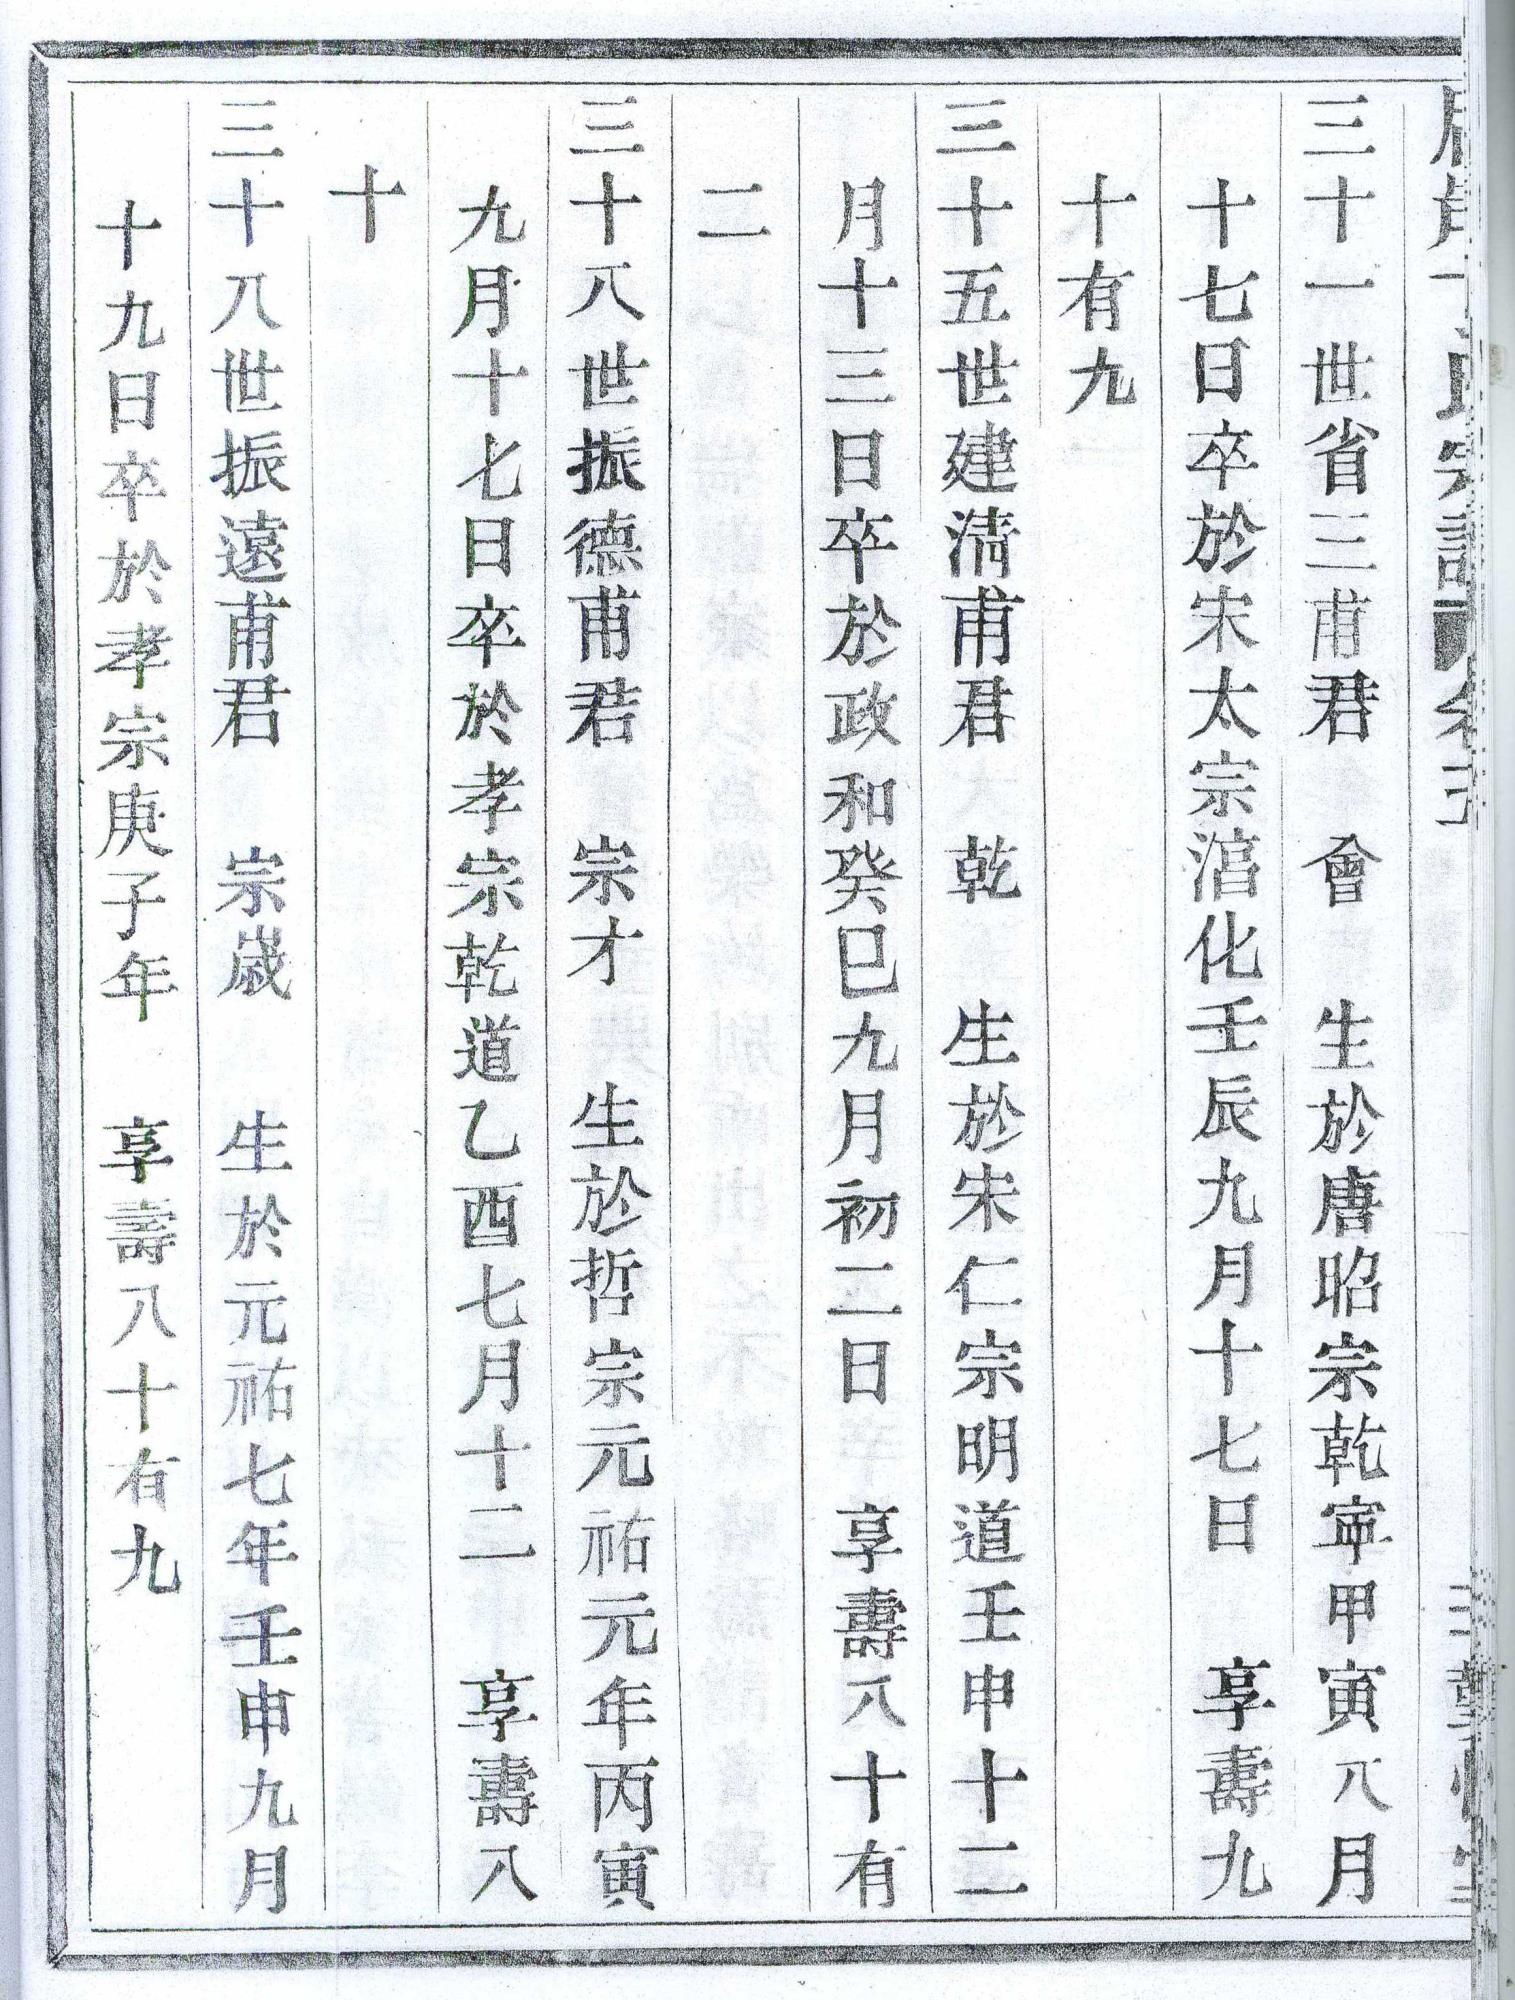 氏宗譜
三十一世省三甫君　會　生於唐昭宗乾寧甲寅八月
十七日卒於宋太宗湻化壬辰九月十七日　享壽九
十有九
三十五世建淸甫君　乾　生於宋仁宗明道壬申十二
月十三日卒於政和癸巳九月初二日　享壽八十有
二
三十八世振德甫君　宗才　生於哲宗元祐元年丙寅
九月十七日卒於孝宗乾道乙酉七月十二　享壽八
十
三十八世振遠甫君　宗歲　生於元祐七年壬申九月
十九日卒於孝宗庚子年　享壽八十有九